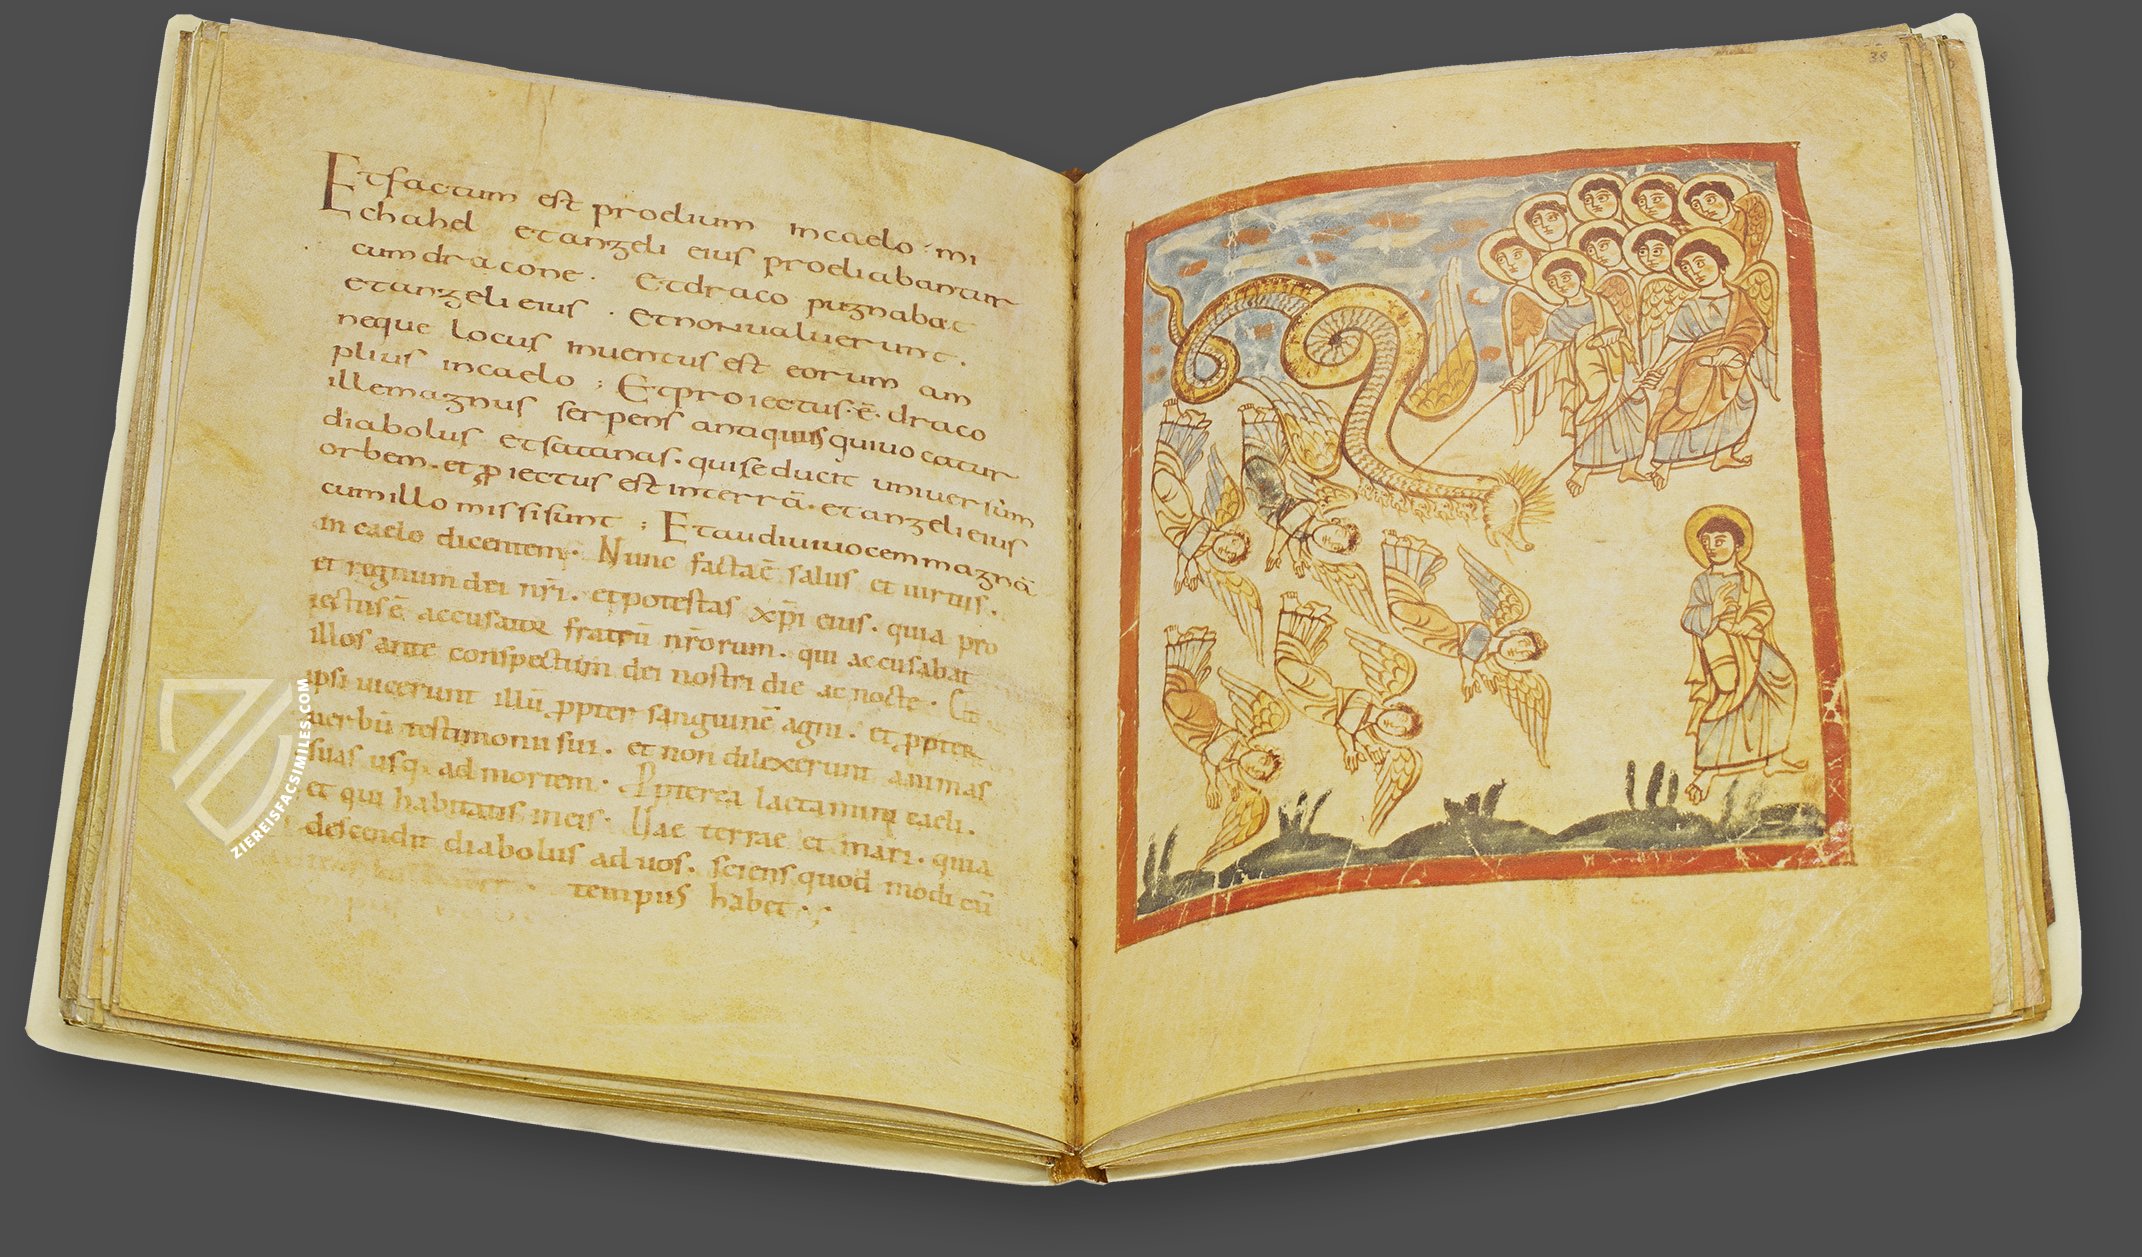 Et factum est proelium in caelo · mi
chahel et angeli eius proeliabantur
cum dracone · Et draco pugnabat
et angeli eius · Et non ualuerunt ·
neque locus inuentus est eorum am
plius in caelo ; Et proiectus · ē · draco
ille magnus serpens antiquus qui uocatur
diabolus et satanas · qui seducit uniuersum
orbem · et ꝓiectus est in terrā · et angeli eius
cum illo missi sunt ; Et audiui uocem magnā
in caelo dicentem · Nunc facta ē salus et uirtus ·
et regnum dei nr̄i · et potestas xp̄i eius · quia pro
iectus ē accusator fratrū nr̄orum · qui accusabat
illos ante conspectum dei nostri die ac nocte · Et
ipsi uicerunt illū ꝓpter sanguinē agni · et ꝓpter
uerbū testimonii sui · et non dilexerunt animas
suas usq· ad mortem · Ꝓpterea laetamini caeli ·
et qui habitatis in eis · Uae terrae et mari · quia
descendit diabolus ad uos · sciens quod modicū
tempus habet ·
38
ZIEREISFACSIMILES.COM